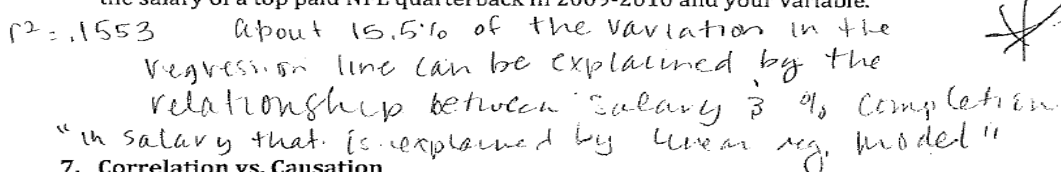 the salary of a top paid NFL quarterback in 2009-2010 and your variable.
r² = .1553 about 15.5% of the variation in the
regression line can be explained by the
relationship between salary & % completion
"in salary that is explained by linear reg. model"
7. Correlation vs. Causation